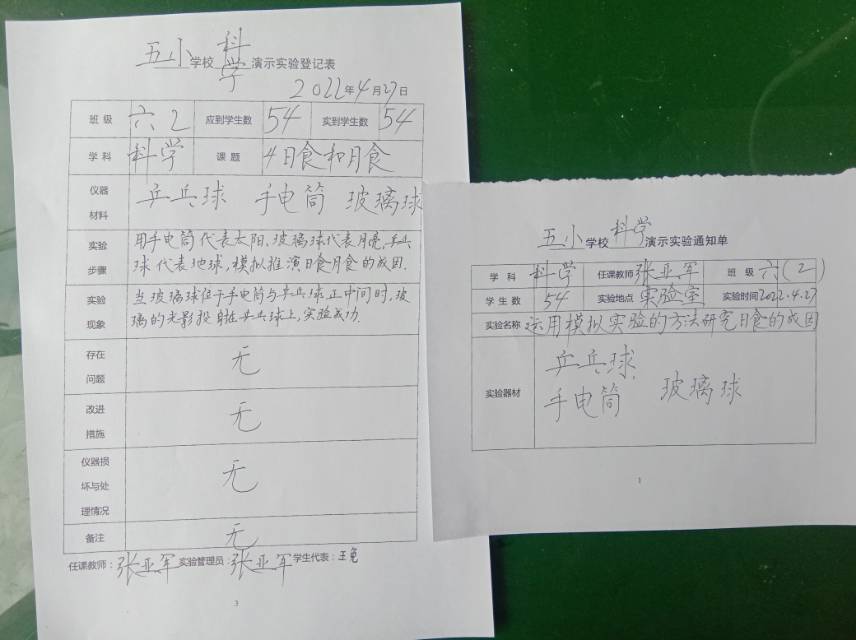 五小学校科学演示实验登记表
2022年4月27日
班级 六2 应到学生数 54 实到学生数 54
学科 科学 课题 4日食和月食
仪器材料 乒乓球 手电筒 玻璃球
实验步骤 用手电筒代表太阳,玻璃球代表月亮,乒乓
球代表地球,模拟推演日食月食的成因.
实验现象 当玻璃球位于手电筒与乒乓球正中间时,玻
璃的光影投射在乒乓球上,实验成功.
存在问题 无
改进措施 无
仪器损坏与处理情况 无
备注 无
任课教师:张亚军 实验管理员:张亚军 学生代表:王
3
五小学校科学演示实验通知单
学科 科学 任课教师 张亚军 班级 六(2)
学生数 54 实验地点 实验室 实验时间 2022.4.27
实验名称 运用模拟实验的方法研究日食的成因
实验器材 乒乓球.
手电筒 玻璃球
1